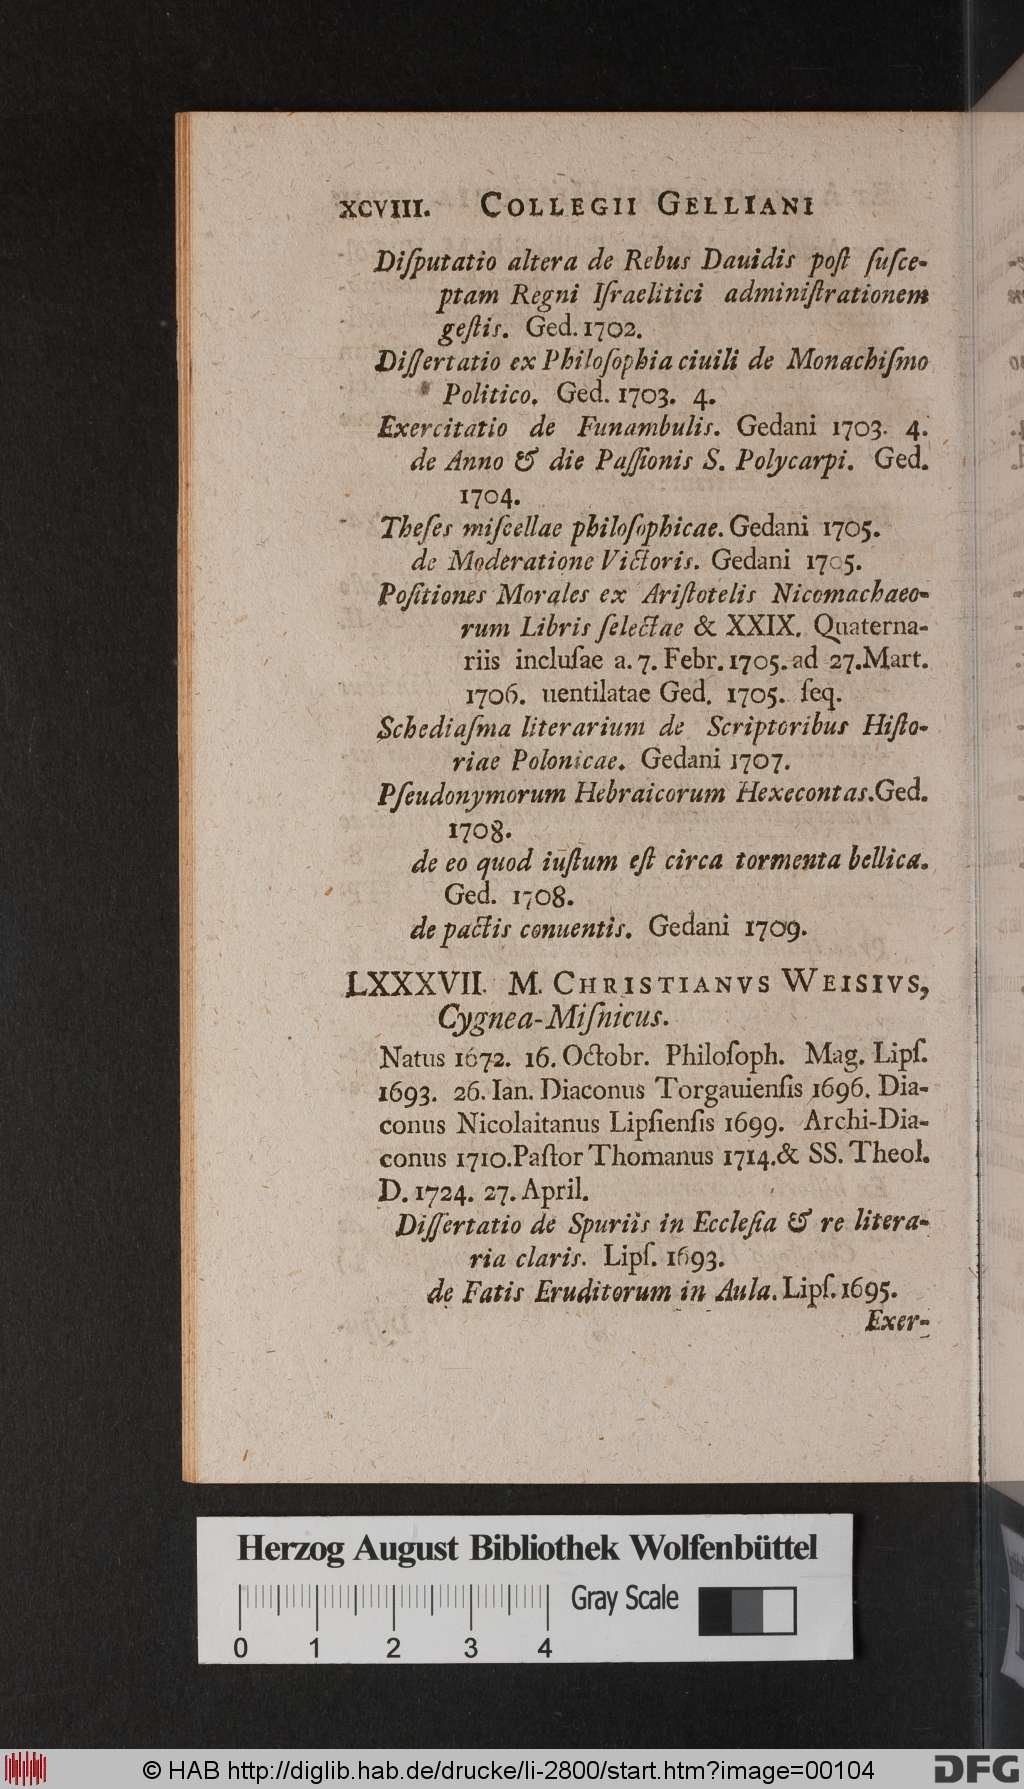 XCVIII. COLLEGII GELLIANI
Diſputatio altera de Rebus Dauidis poſt ſuſce-
ptam Regni Iſraelitici adminiſtrationem
geſtis. Ged. 1702.
Diſſertatio ex Philoſophia ciuili de Monachiſmo
Politico. Ged. 1703. 4.
Exercitatio de Funambulis. Gedani 1703. 4.
de Anno & die Paſſionis S. Polycarpi. Ged.
1704.
Theſes miſcellae philoſophicae. Gedani 1705.
de Moderatione Victoris. Gedani 1705.
Poſitiones Morales ex Ariſtotelis Nicomachaeo-
rum Libris ſelectae & XXIX. Quaterna-
riis incluſae a. 7. Febr. 1705. ad 27. Mart.
1706. uentilatae Ged. 1705. ſeq.
Schediaſma literarium de Scriptoribus Hiſto-
riae Polonicae. Gedani 1707.
Pſeudonymorum Hebraicorum Hexecontas. Ged.
1708.
de eo quod iuſtum eſt circa tormenta bellica.
Ged. 1708.
de pactis conuentis. Gedani 1709.
LXXXVII. M. CHRISTIANVS WEISIVS,
Cygnea-Miſnicus.
Natus 1672. 16. Octobr. Philoſoph. Mag. Lipſ.
1693. 26. Ian. Diaconus Torgauienſis 1696. Dia-
conus Nicolaitanus Lipſienſis 1699. Archi-Dia-
conus 1710. Paſtor Thomanus 1714. & SS. Theol.
D. 1724. 27. April.
Diſſertatio de Spuriis in Eccleſia & re litera-
ria claris. Lipſ. 1693.
de Fatis Eruditorum in Aula. Lipſ. 1695.
Exer-
Herzog August Bibliothek Wolfenbüttel
Gray Scale
0 1 2 3 4
© HAB http://diglib.hab.de/drucke/li-2800/start.htm?image=00104
DFG